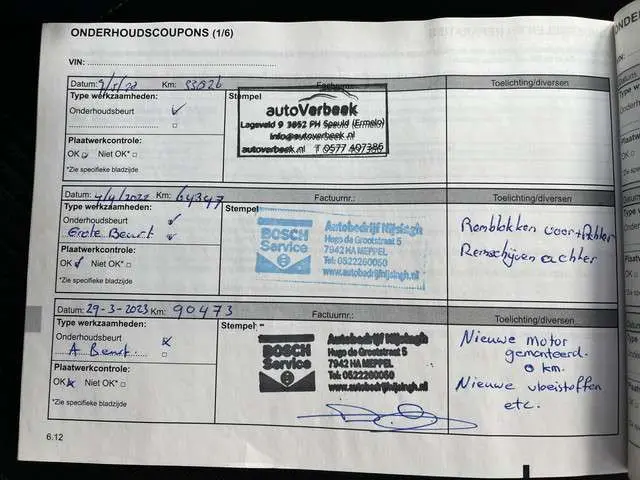 ONDERHOUDSCOUPONS (1/6)
VIN:
Datum: Km: 33026 Factuurnr.: Toelichting/diversen
Type werkzaamheden: Stempel
Onderhoudsbeurt
Plaatwerkcontrole:
OK Niet OK*
*Zie specifieke bladzijde
autoVerbeek
Lageveld 9 3852 PH Speuld (Ermelo)
info@autoverbeek.nl
autoverbeek.nl T 0577 407386
Datum: 4/4/2022 Km: 64347 Factuurnr.: Toelichting/diversen
Type werkzaamheden: Stempel
Onderhoudsbeurt
Grote Beurt
Plaatwerkcontrole:
OK Niet OK*
*Zie specifieke bladzijde
BOSCH
Service
Autobedrijf Nijsingh
Hugo de Grootstraat 5
7942 HA MEPPEL
Tel: 0522260050
www.autobedrijfnijsingh.nl
Remblokken voor+Achter
Remschijven achter
Datum: 29-3-2023 Km: 90473 Factuurnr.: Toelichting/diversen
Type werkzaamheden: Stempel
Onderhoudsbeurt
A Beurt
Plaatwerkcontrole:
OK Niet OK*
*Zie specifieke bladzijde
BOSCH
Service
Autobedrijf Nijsingh
Hugo de Grootstraat 5
7942 HA MEPPEL
Tel: 0522260050
www.autobedrijfnijsingh.nl
Nieuwe motor
gemonteerd.
0 km.
Nieuwe vloeistoffen
etc.
6.12